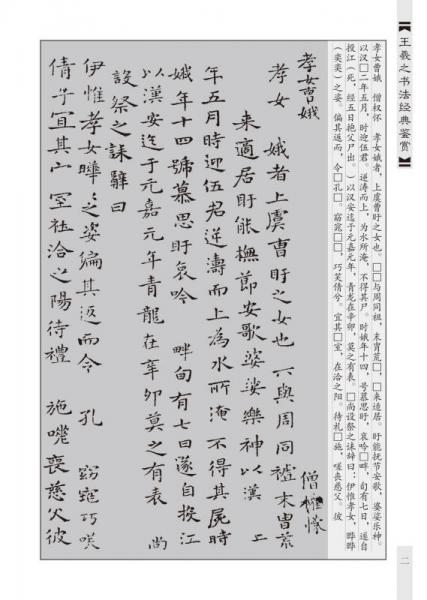 【王羲之书法经典鉴赏】
孝女曹娥　僧权怀　孝女娥者，上虞曹盱之女也。□□与周同祖，末胄荒□，□来适居。盱能抚节安歌，婆娑乐神。
以汉□二年五月，时迎伍君。逆涛而上，为水所淹，不得其尸。时娥年十四，号慕思盱，哀吟□畔，旬有七日，遂自
投江（死，经五日抱父尸出。）以汉安迄于元嘉元年，青龙在辛卯，莫之有表。□尚设祭之诔辞曰：伊惟孝女，晔晔
（奕奕）之姿。偏其返而，令□孔□。窈窕□□，巧笑倩兮。宜其□室，在洽之阳。待礼□施，嗟丧慈父。彼
孝女曹娥
僧權懷
孝女　娥者上虞曹盱之女也　與周同祖末胄荒
来適居盱能撫節安歌婆娑樂神以漢　二
年五月時迎伍君逆濤而上為水所淹不得其屍時
娥年十四號慕思盱哀吟　畔旬有七日遂自投江
以漢安迄于元嘉元年青龍在辛卯莫之有表　尚
設祭之誄辭曰
伊惟孝女曄曄之姿偏其返而令　孔　窈窕巧咲
倩兮宜其　室在洽之陽待禮　施嗟喪慈父彼
二